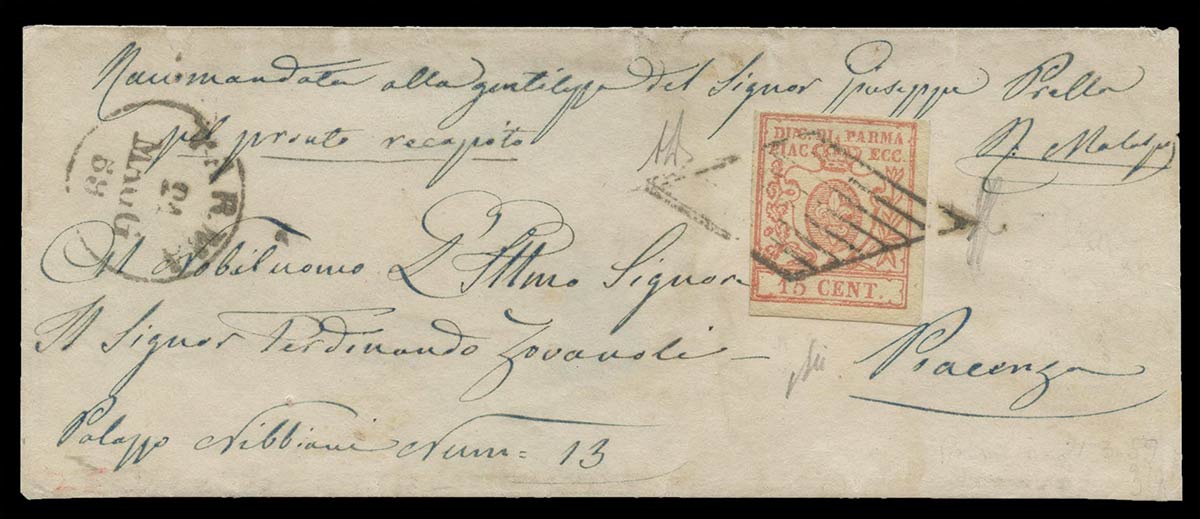 Raccomandata alla gentilezza del Signor Giuseppe Prella
pel pronto recapito
PARMA
21
59
DUC. DI PARMA
PIAC ECC.
15 CENT.
Al Nobiluomo L'Illmo Signor
Il Signor Ferdinando Zovanoli
Piacenza
Palazzo Nibbiani Num= 13